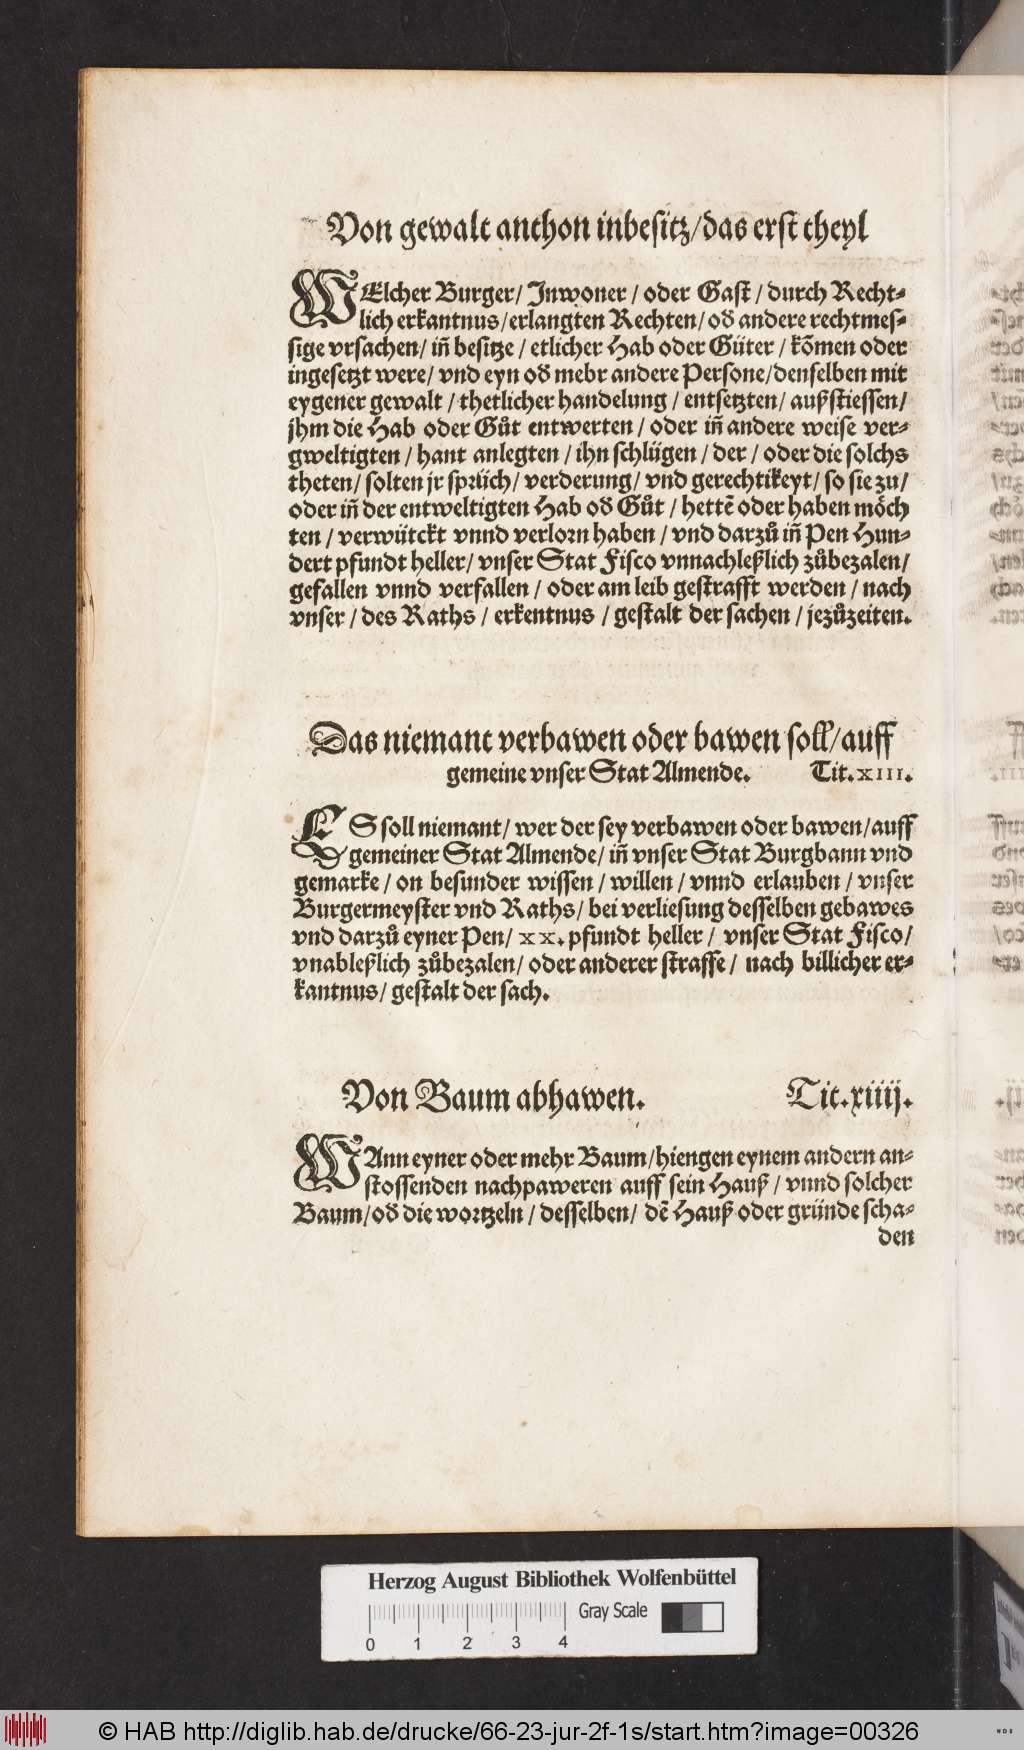 Von gewalt anthon inbesitz/das erst theyl
WElcher Burger/ Inwoner/ oder Gast/ durch Recht⸗
lich erkantnus/erlangten Rechten/ oď andere rechtmes⸗
sige vrsachen/ iñ besitze/ etlicher Hab oder Güter/ kõmen oder
ingesetzt were/ vnd eyn oď mebr andere Persone/denselben mit
eygener gewalt/ thetlicher handelung/ entsetzten/ außstiessen/
jhm die Hab oder Gůt entwerten/ oder iñ andere weise ver⸗
gweltigten/ hant anlegten/ ihn schlügen/ der/ oder die solchs
theten/ solten jr sprüch/ verderung/ vnd gerechtikeyt/ so sie zu/
oder iñ der entweltigten Hab oď Gůt/ hettẽ oder haben möch
ten/ verwürckt vnnd verlorn haben/ vnd darzů iñ Pen Hun⸗
dert pfundt heller/ vnser Stat Fisco vnnachleßlich zůbezalen/
gefallen vnnd verfallen/ oder am leib gestrafft werden/ nach
vnser/ des Raths/ erkentnus/ gestalt der sachen/ jezůzeiten.
Das niemant verbawen oder bawen soll/auff
gemeine vnser Stat Almende. Tit. XIII.
ES soll niemant/ wer der sey verbawen oder bawen/auff
gemeiner Stat Almende/ iñ vnser Stat Burgbann vnd
gemarke/ on besunder wissen/ willen/ vnnd erlauben/ vnser
Burgermeyster vnd Raths/ bei verliesung desselben gebawes
vnd darzů eyner Pen/ XX. pfundt heller/ vnser Stat Fisco/
vnableßlich zůbezalen/ oder anderer straffe/ nach billicher er⸗
kantnus/ gestalt der sach.
Von Baum abhawen. Tit. xiiij.
WAnn eyner oder mehr Baum/hiengen eynem andern an⸗
stossenden nachpaweren auff sein Hauß/ vnnd solcher
Baum/oď die wortzeln/ desselben/ dẽ Hauß oder gründe scha⸗
den
Herzog August Bibliothek Wolfenbüttel
Gray Scale
0 1 2 3 4
© HAB http://diglib.hab.de/drucke/66-23-jur-2f-1s/start.htm?image=00326